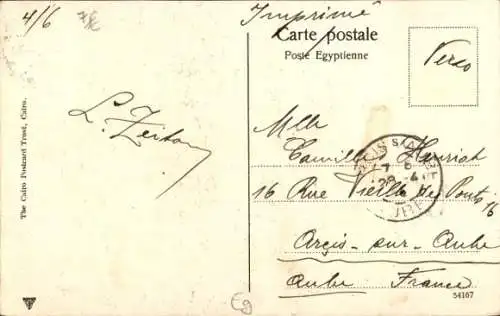 4/6
Imprimé
Carte postale
Poste Egyptienne
Verso
L. Zeitoun
The Cairo Postcard Trust, Cairo.
Mlle
Camille Henriot
16 Rue Vieille des Ponts 16
Arcis-sur-Aube
Aube France
ARCIS S/AUBE
AUBE
54167
Eg